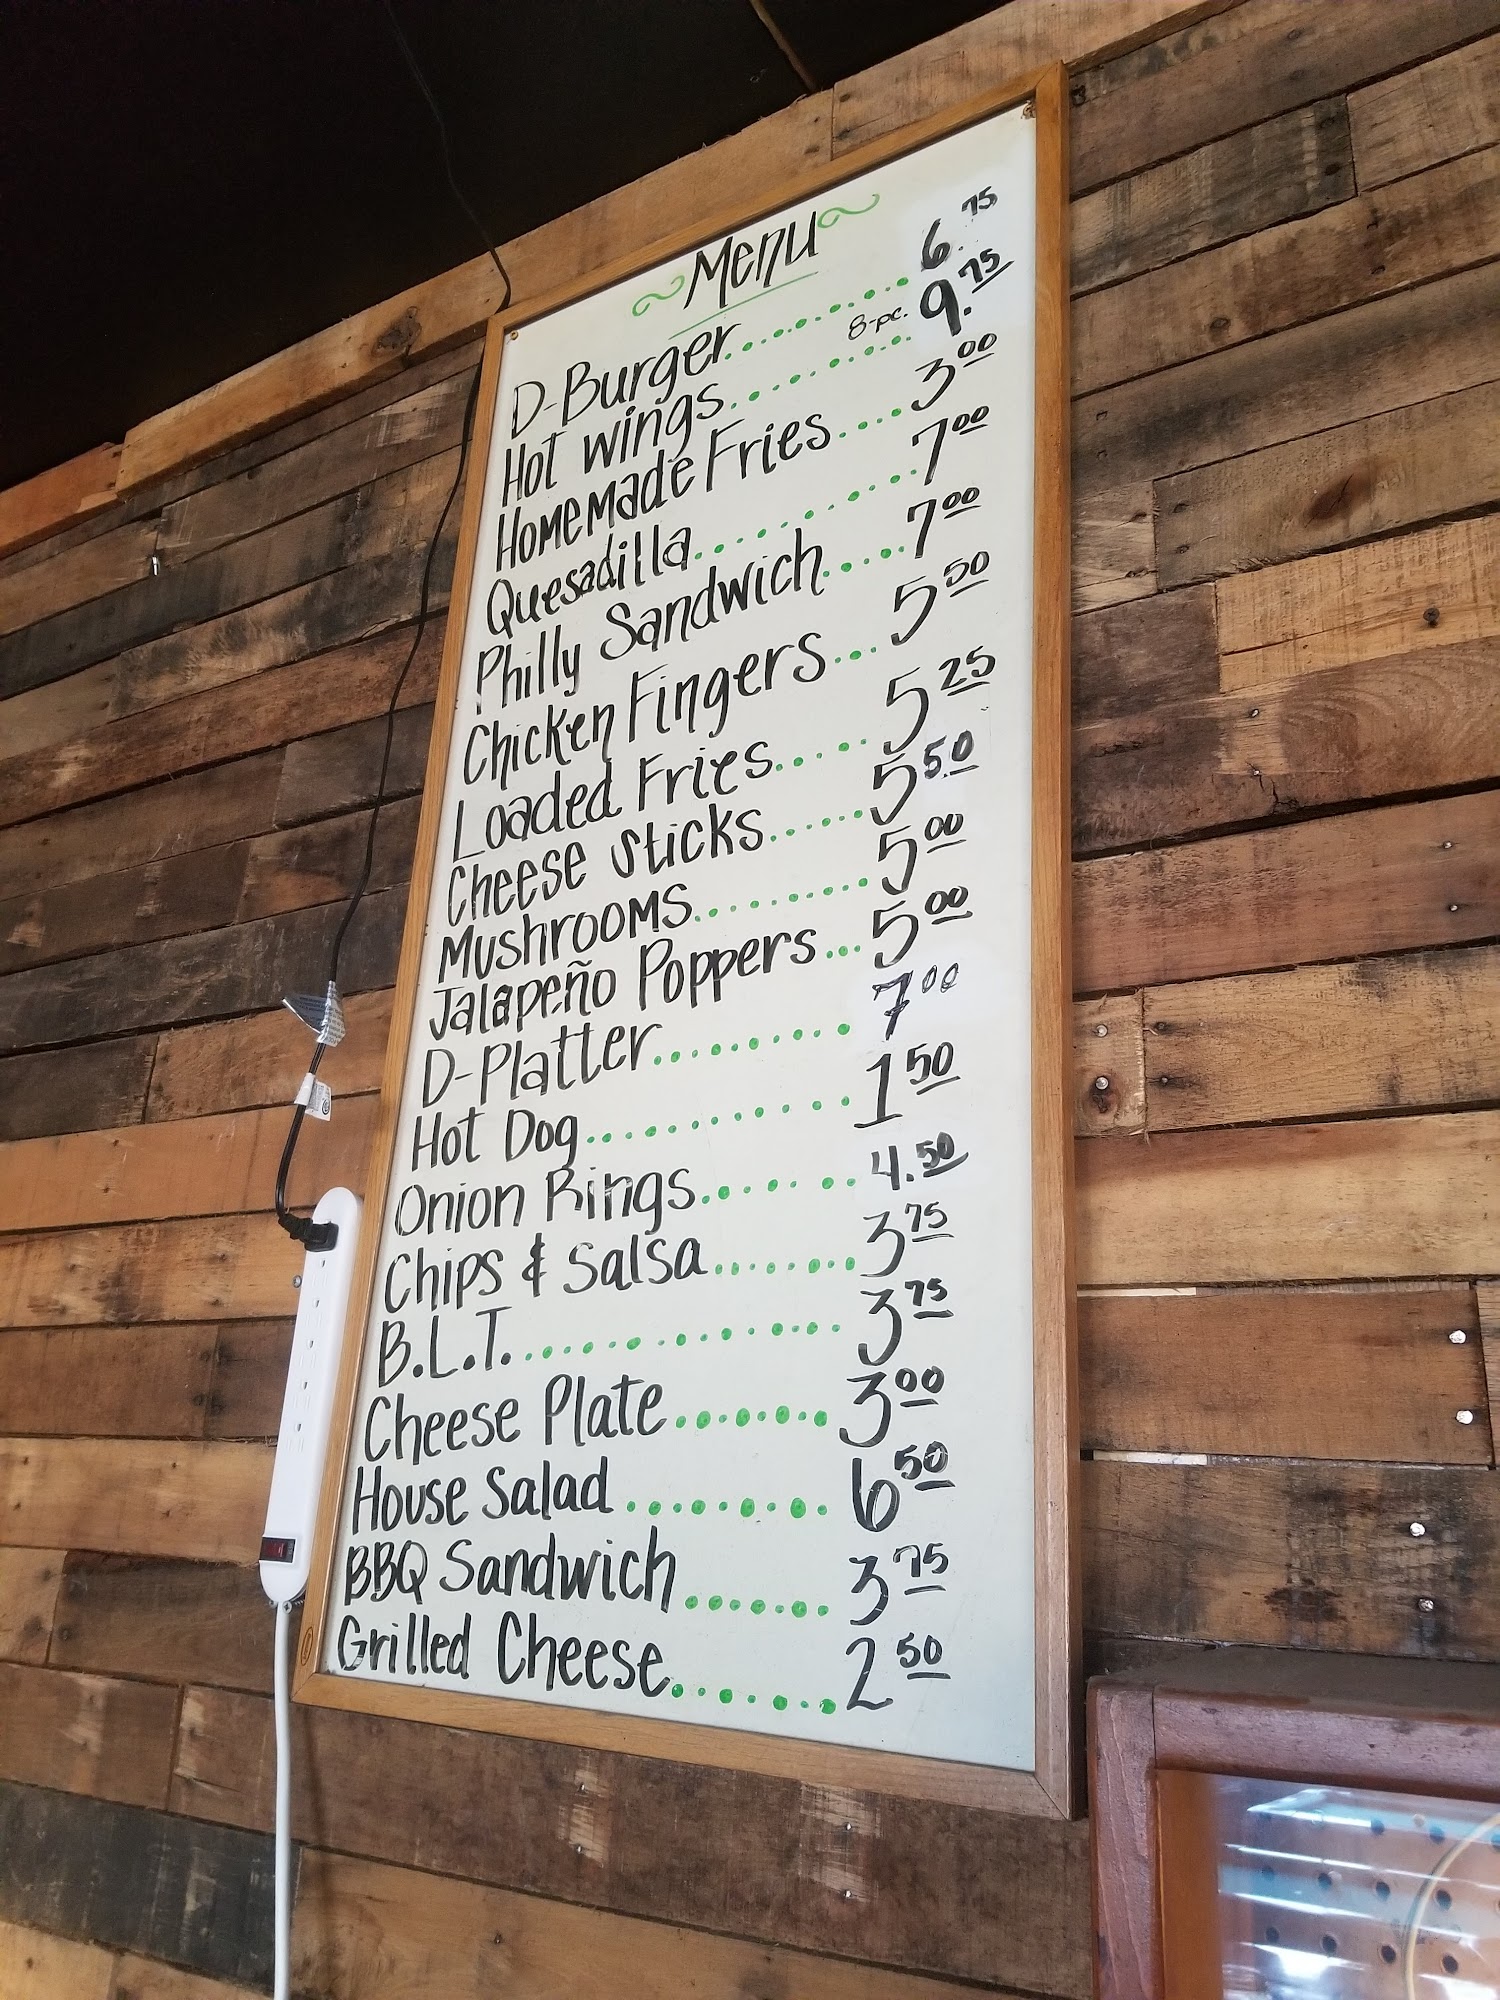 Menu
D-Burger 6.75
Hot wings 8-pc. 9.75
Homemade Fries 3.00
Quesadilla 7.00
Philly Sandwich 7.00
Chicken Fingers 5.50
Loaded Fries 5.25
Cheese Sticks 5.50
Mushrooms 5.00
Jalapeño Poppers 5.00
D-Platter 7.00
Hot Dog 1.50
Onion Rings 4.50
Chips & Salsa 3.75
B.L.T. 3.75
Cheese Plate 3.00
House Salad 6.50
BBQ Sandwich 3.75
Grilled Cheese 2.50